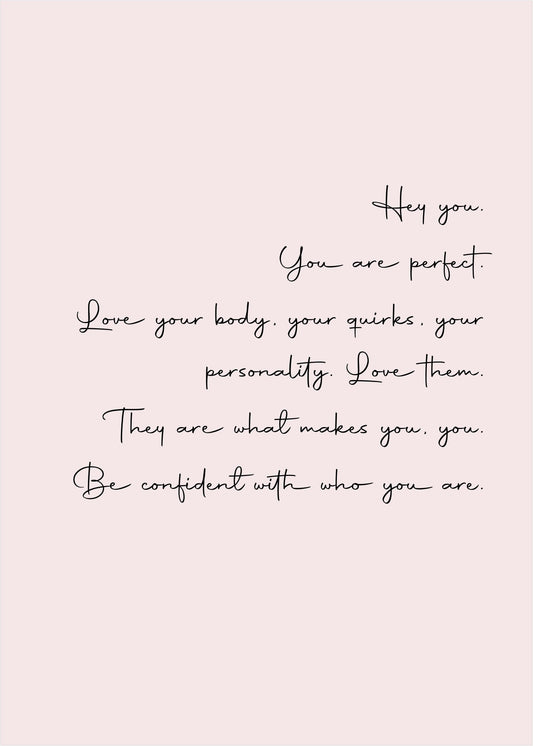 Hey you.
You are perfect.
Love your body, your quirks, your
personality. Love them.
They are what makes you, you.
Be confident with who you are.